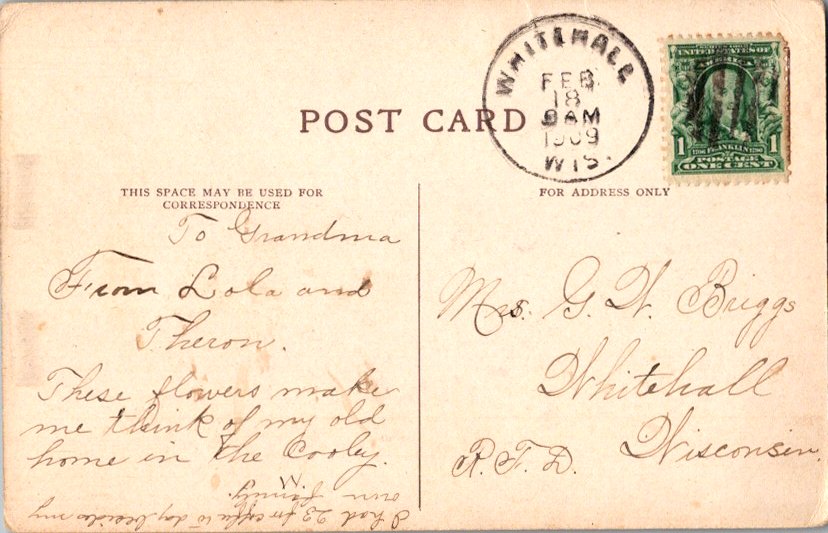 POST CARD
WHITEHALL
FEB.
18
8AM
1909
WIS.
SERIES 1902
UNITED STATES OF
AMERICA
1 1706 FRANKLIN 1790 1
POSTAGE
ONE CENT
THIS SPACE MAY BE USED FOR
CORRESPONDENCE
To Grandma
From Lola and
Theron.
These flowers make
me think of my old
home in the Cooley.
M
I had 23 for to day besides my
own family.
FOR ADDRESS ONLY
Mrs. G. W. Briggs
Whitehall
Wisconsin
R. F. D.